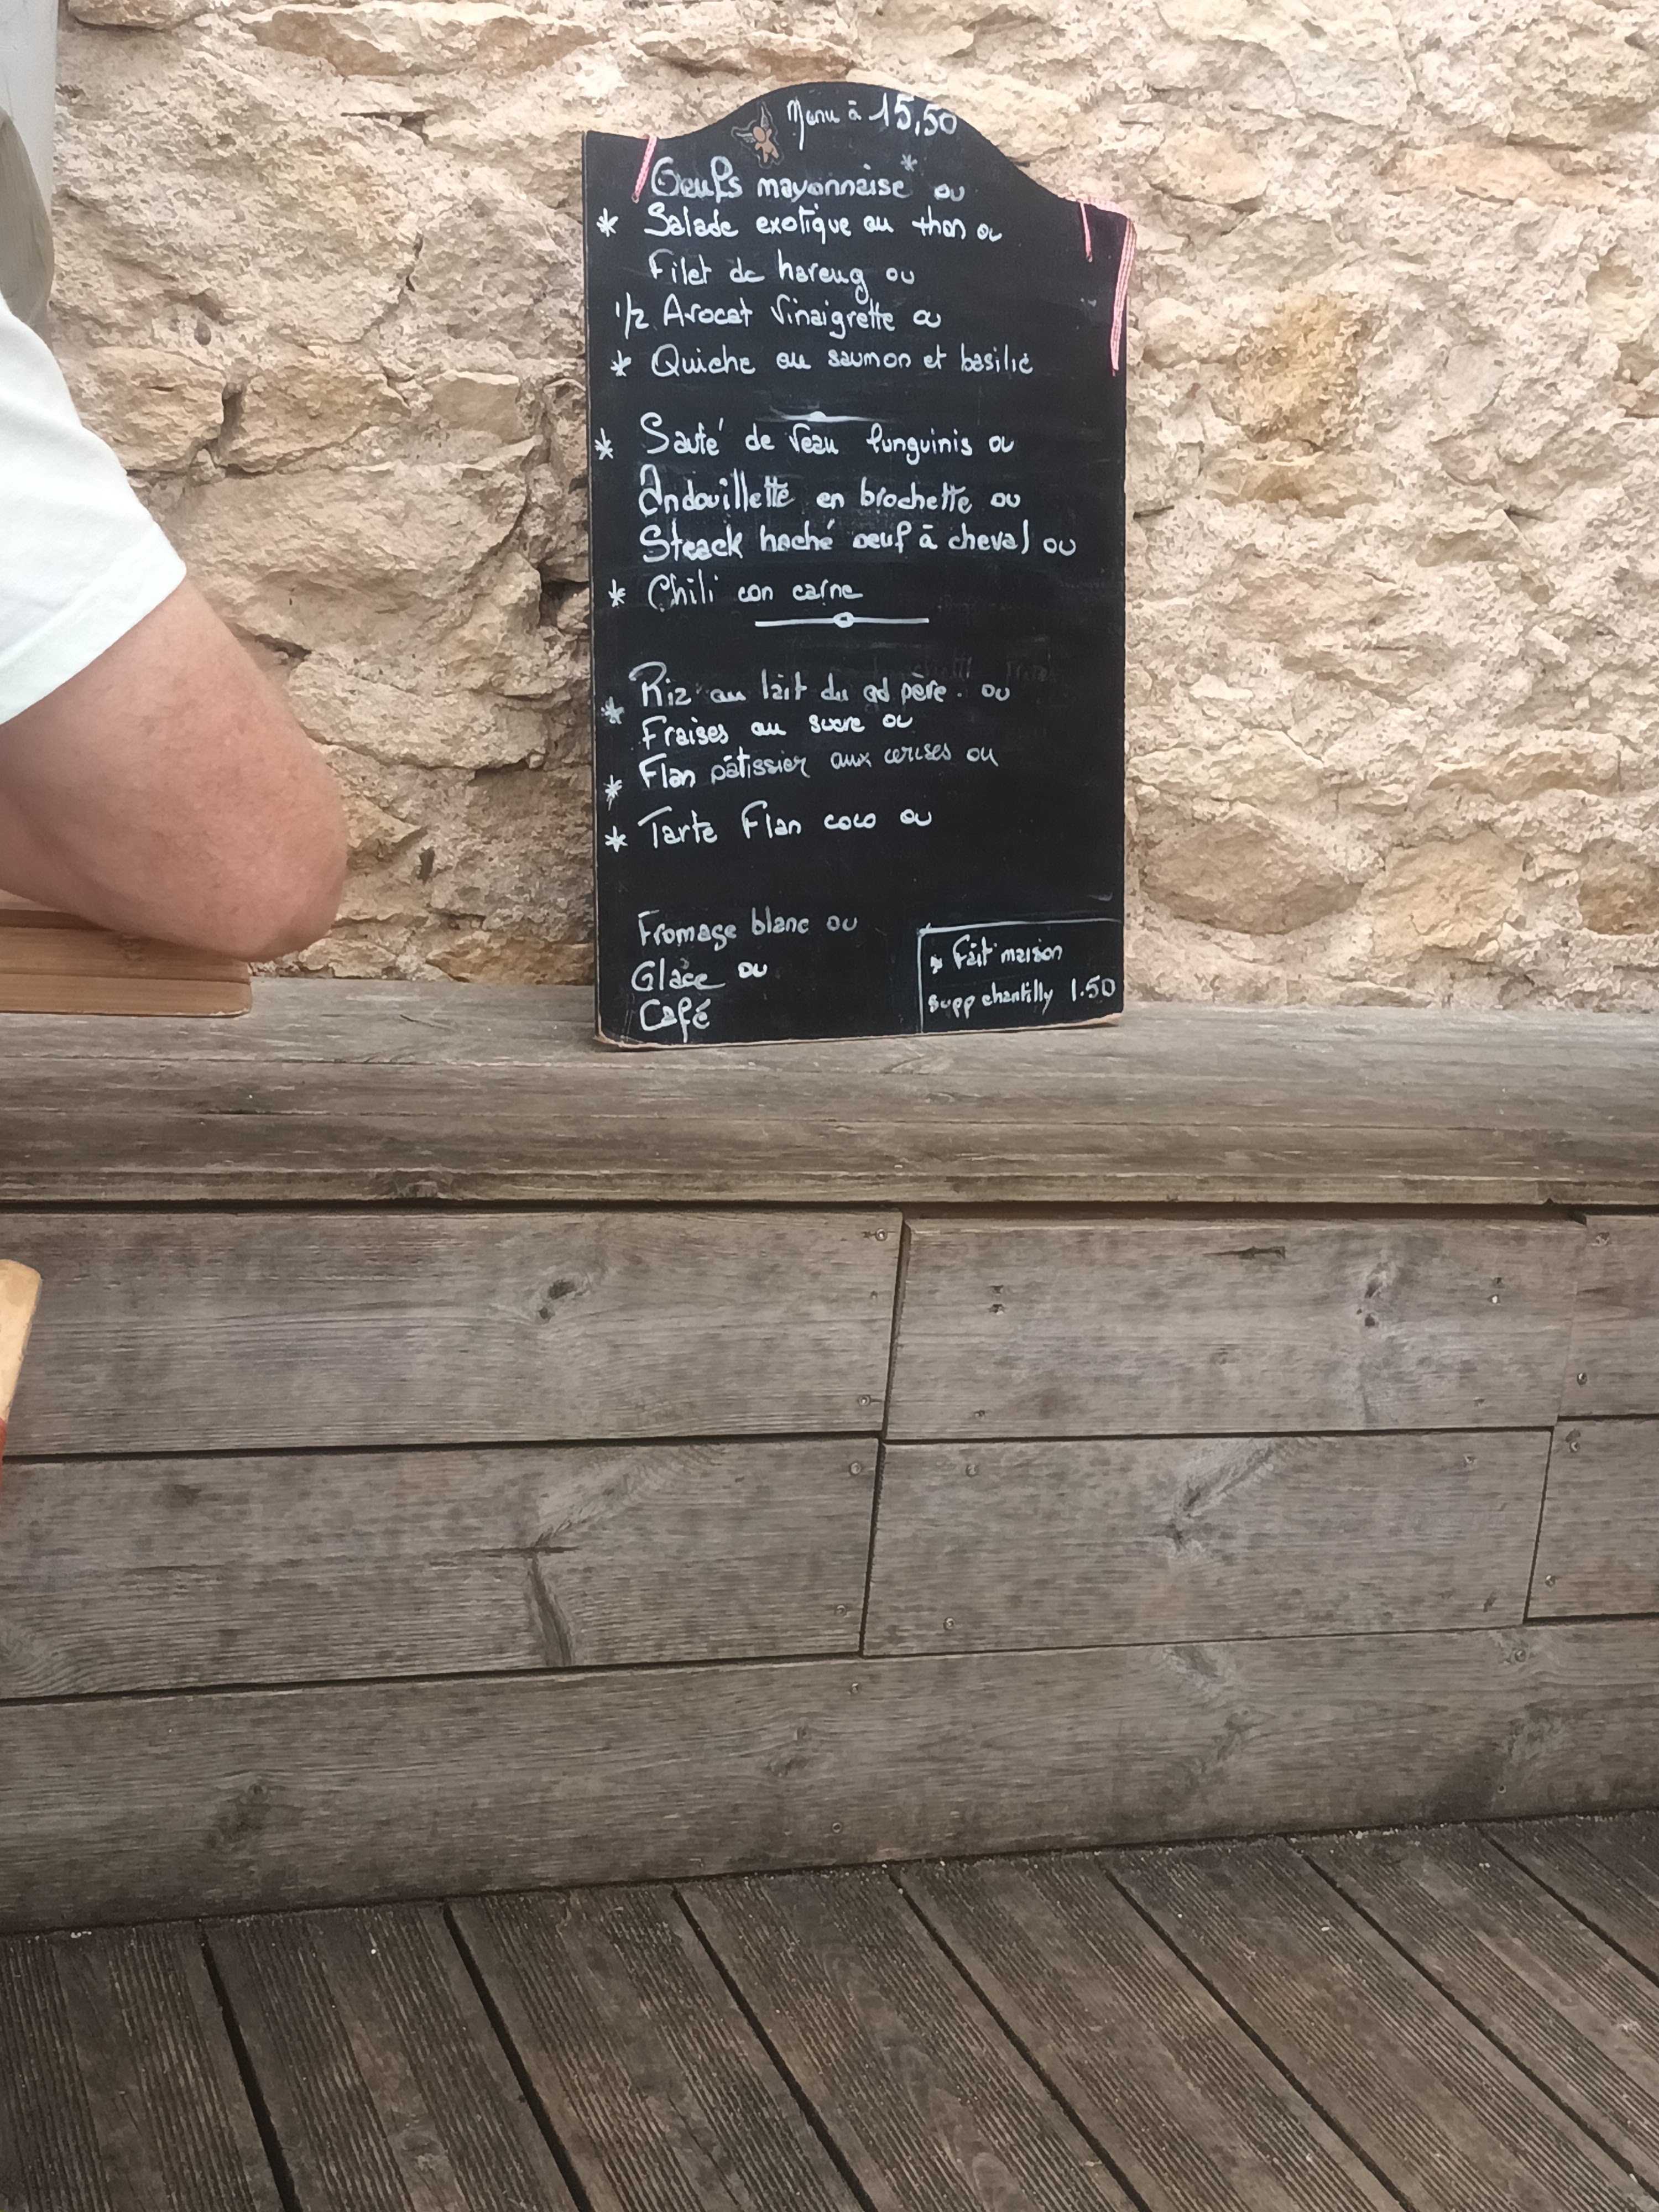 Menu à 15,50
Oeufs mayonnaise* ou
* Salade exotique au thon ou
Filet de hareng ou
1/2 Avocat Vinaigrette ou
* Quiche au saumon et basilic
* Sauté de Veau lunguinis ou
Andouillette en brochette ou
Steack haché oeuf à cheval ou
* Chili con carne
* Riz au lait du gd père. ou
Fraises au sucre ou
* Flan pâtissier aux cerises ou
* Tarte Flan coco ou
Fromage blanc ou
Glace ou
Café
* Fait maison
supp chantilly 1.50